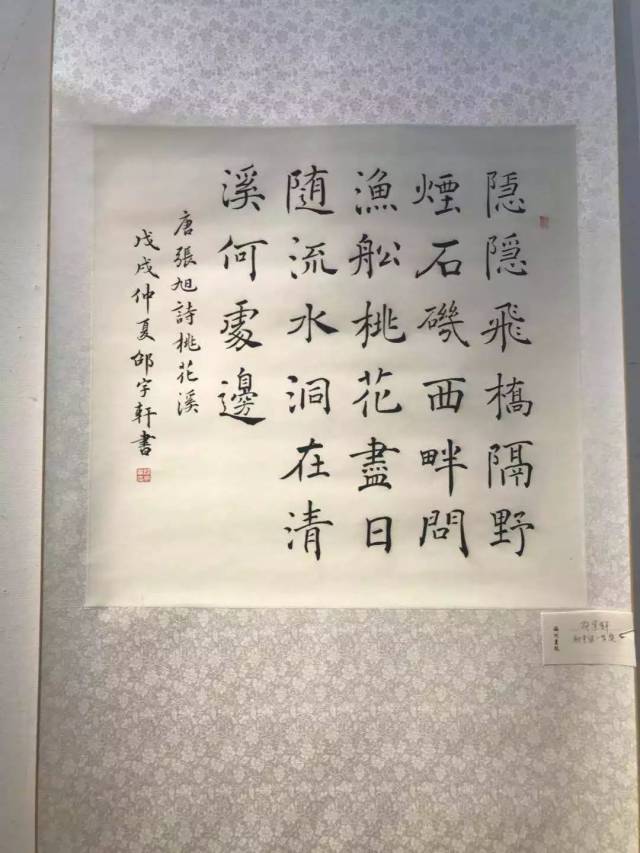 隱隱飛橋隔野
煙石磯西畔問
漁船桃花盡日
隨流水洞在清
溪何處邊
唐張旭詩桃花溪
戊戌仲夏邰宇軒書